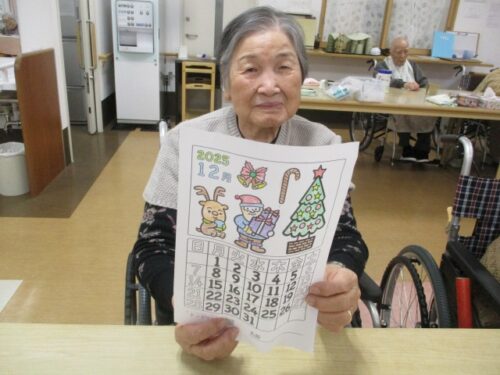 2025
12月
日 月 火 水 木 金 土
1 2 3 4 5 6
7 8 9 10 11 12 13
14 15 16 17 18 19
21 22 23 24 25
28 29 30 31